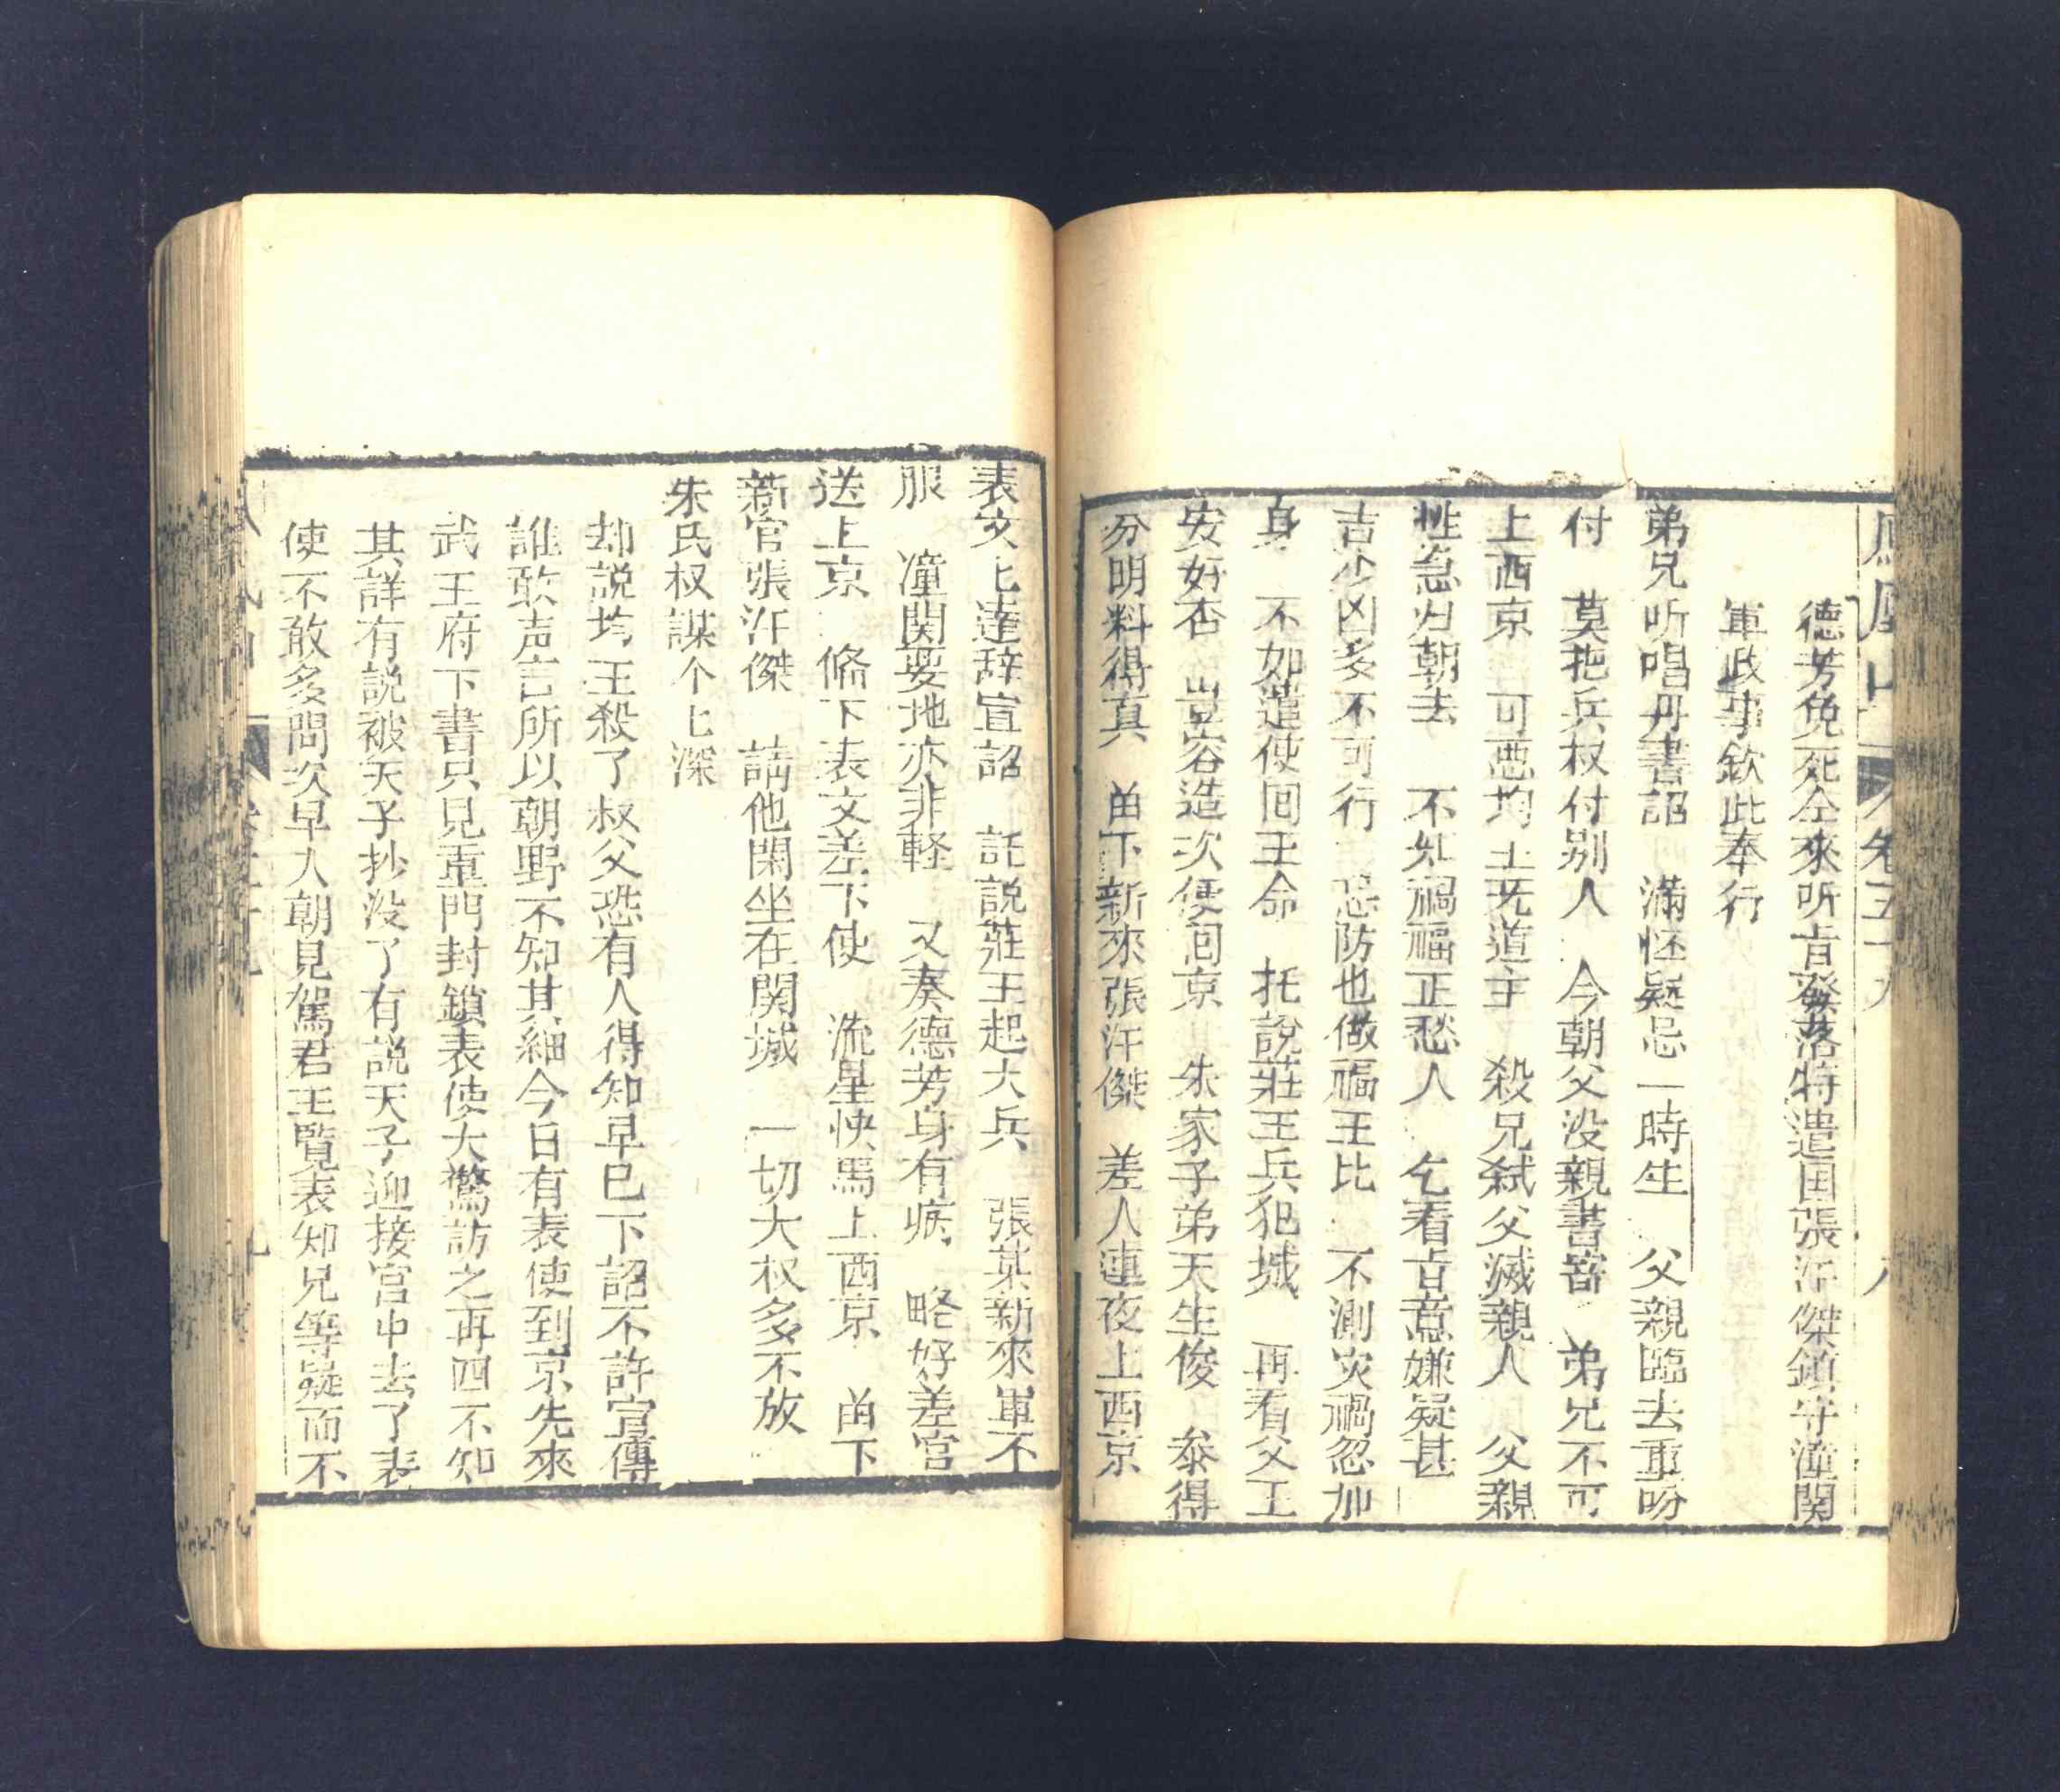 鳳凰山 卷五十九 八
德芳免死仝來听㫖發落特遣囯張汗傑鎮守潼関
軍政事欽此奉行
弟兄听唱丹書詔 滿怀疑忌一時生 父親臨去重吩
付 莫把兵权付别人 今朝父没親書音 弟兄不可
上西京 可悪均王无道主 殺兄弒父滅親人 父親
性急归朝去 不知禍福正愁人 乞看㫖意嫌疑甚
吉少凶多不可行 忌防也做福王比 不測灾禍忽加
身 不如遣使囘王命 托說莊王兵犯城 再看父王
安好否 豈容造次便囘京 朱家子弟天生俊 叅得
分明料得真 畄下新來張汗傑 差人連夜上西京
表文上達辞宣詔 託説莊王起大兵 張某新來軍不
服 潼関要地亦非軽 又奏德芳身有病 略好差官
送上京 修下表文差下使 流星快馬上西京 畄下
新官張汗傑 請他閑坐在関城 一切大权多不放
朱氏权謀个上深
却説均王殺了叔父恐有人得知早已下詔不許宣傳
誰敢声言所以朝野不知其細今日有表使到京先來
武王府下書只見重門封鎖表使大驚訪之再四不知
其詳有説被天子抄没了有説天子迎接宫中去了表
使不敢多問次早入朝見駕君王覧表知兄等疑而不